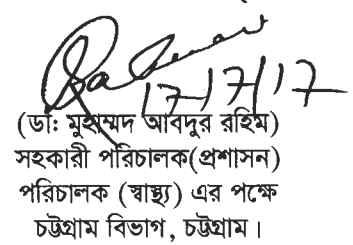 17/7/17
(ডাঃ মুহাম্মদ আবদুর রহিম)
সহকারী পরিচালক(প্রশাসন)
পরিচালক (স্বাস্থ্য) এর পক্ষে
চট্টগ্রাম বিভাগ, চট্টগ্রাম।